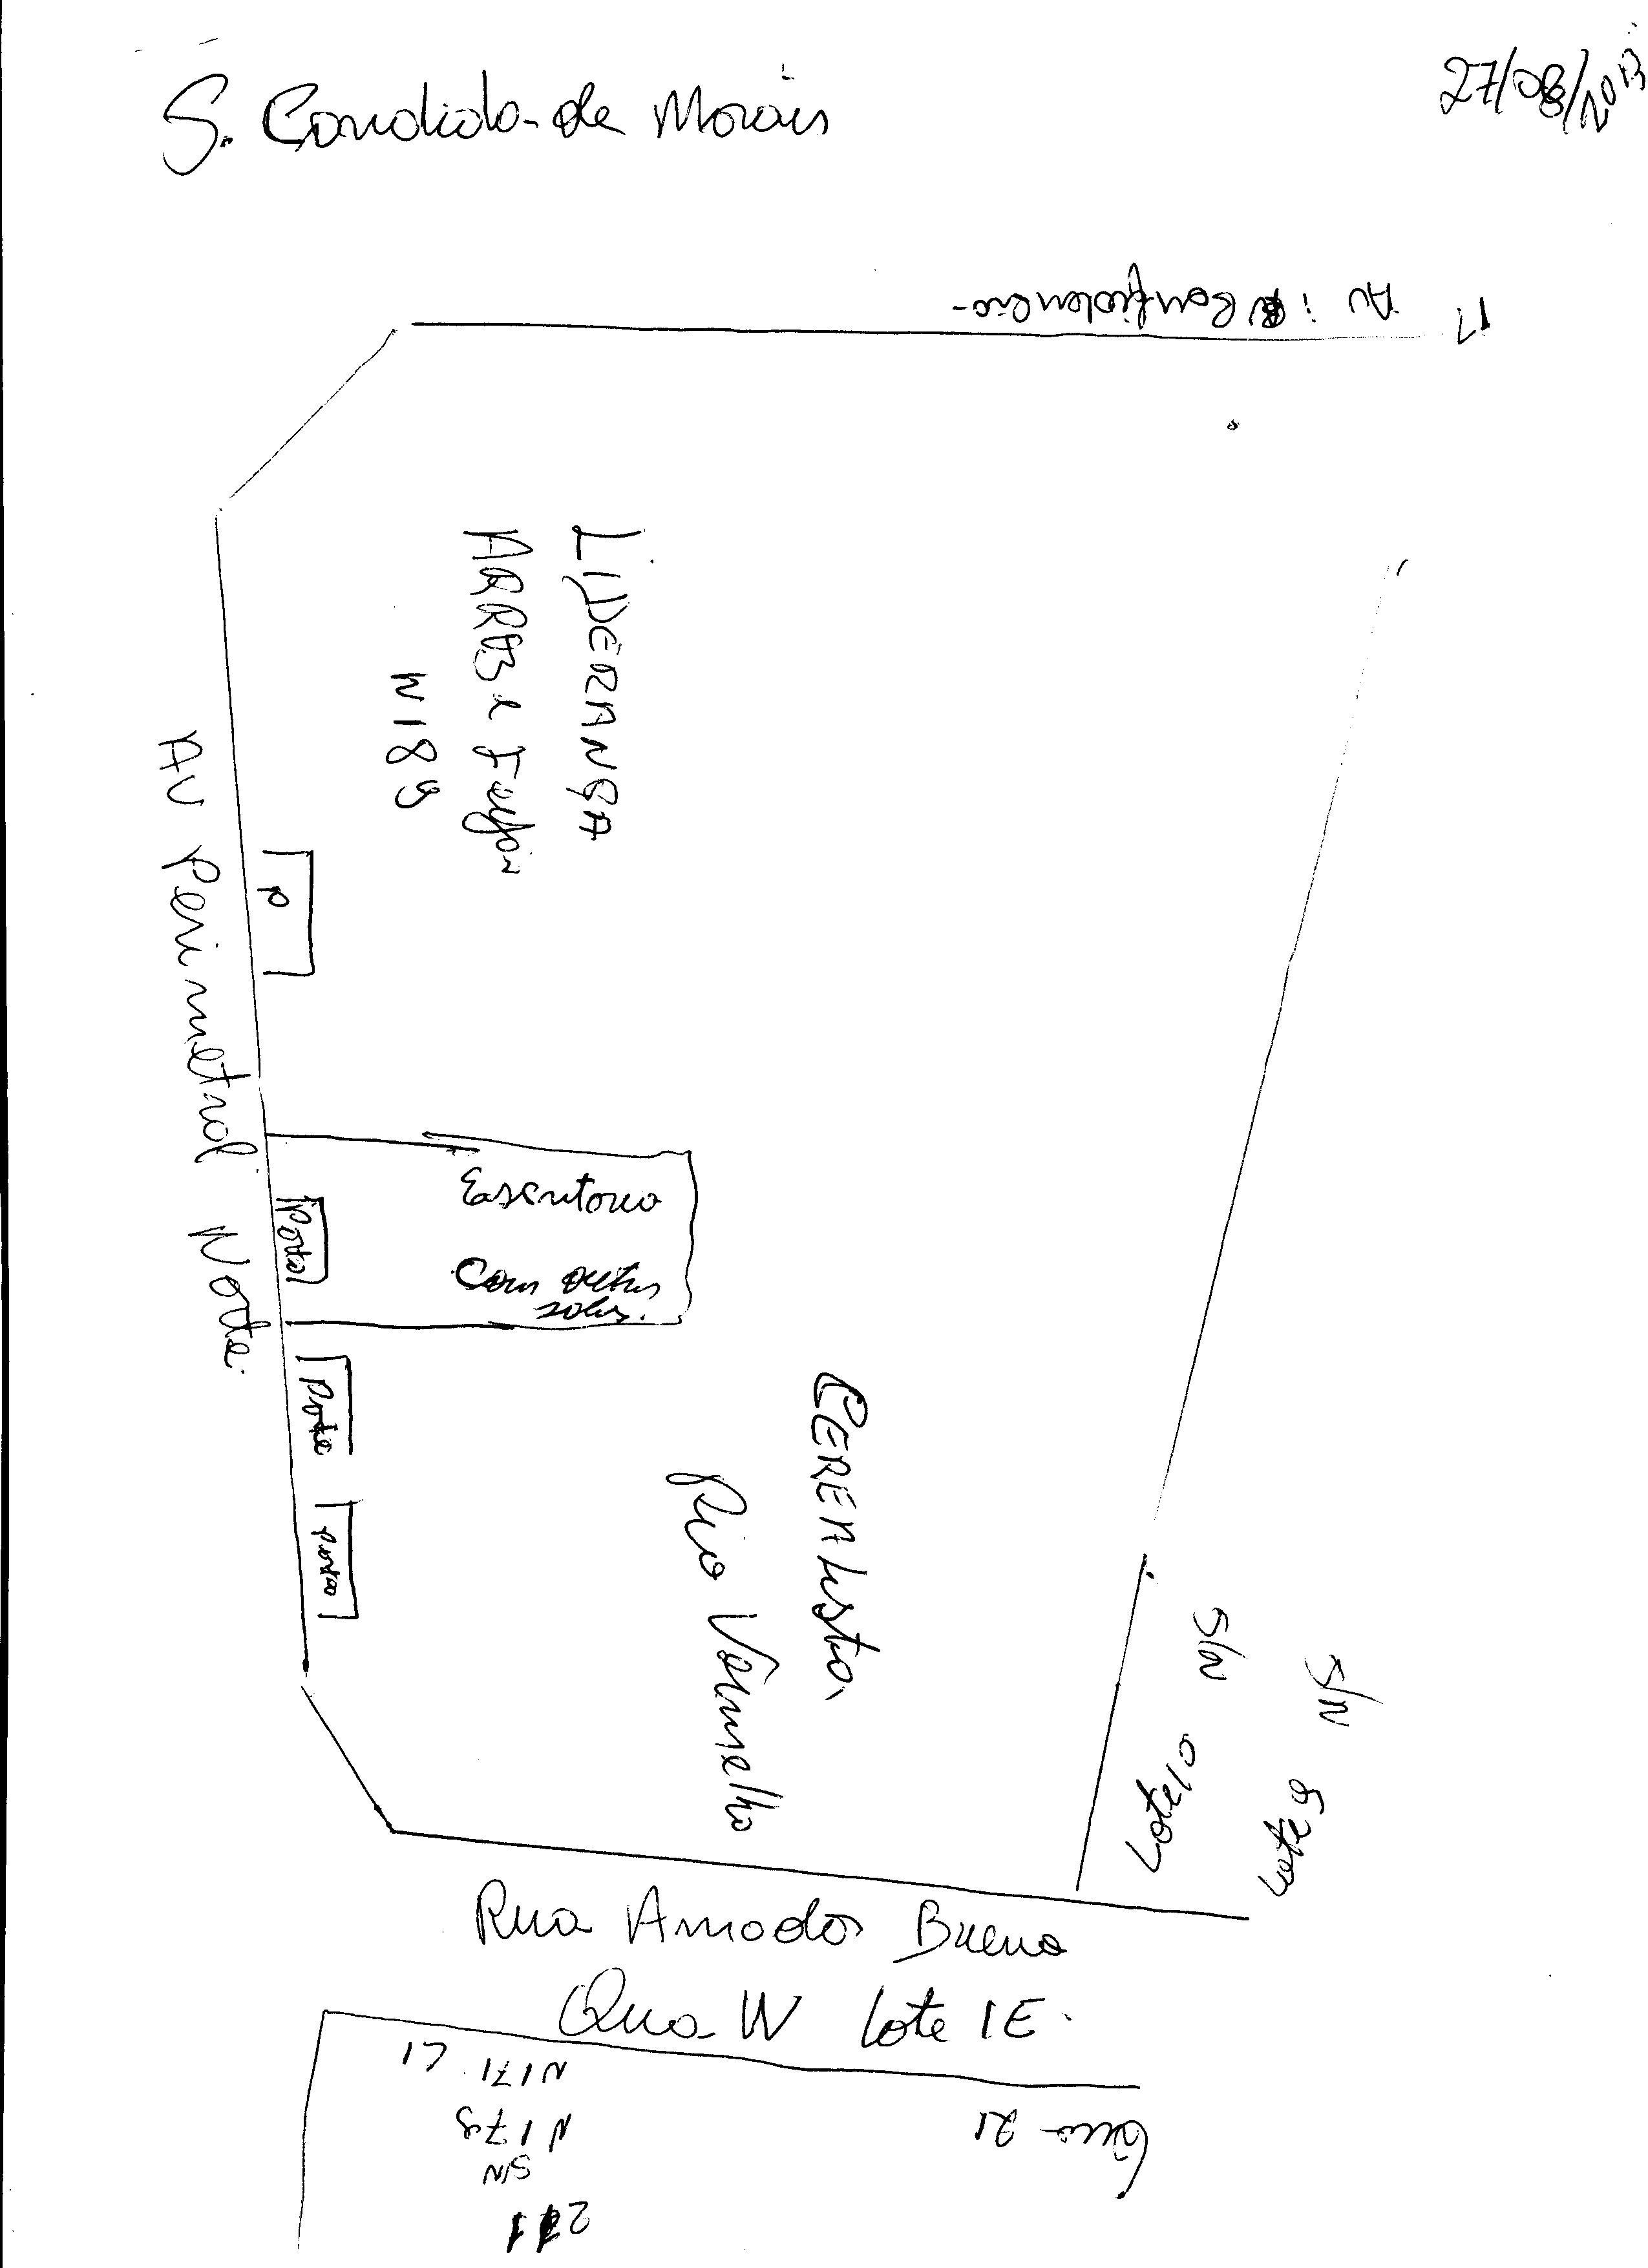 S. Candido de Morais
27/08/2013
Av: Confidencia
LIDERANÇA
ARROZ e Feijão
N 189
P
AV Perimetral Norte.
Escritorio
Com outras
salas.
Porta
Porta
Portao
CEREAlista
Rio Vermelho
S/N
S/N
Lote 10
Lote 9
Rua Amador Bueno
Qua W Lote 1E.
N 171 L1
N 179
SN
Qua 21